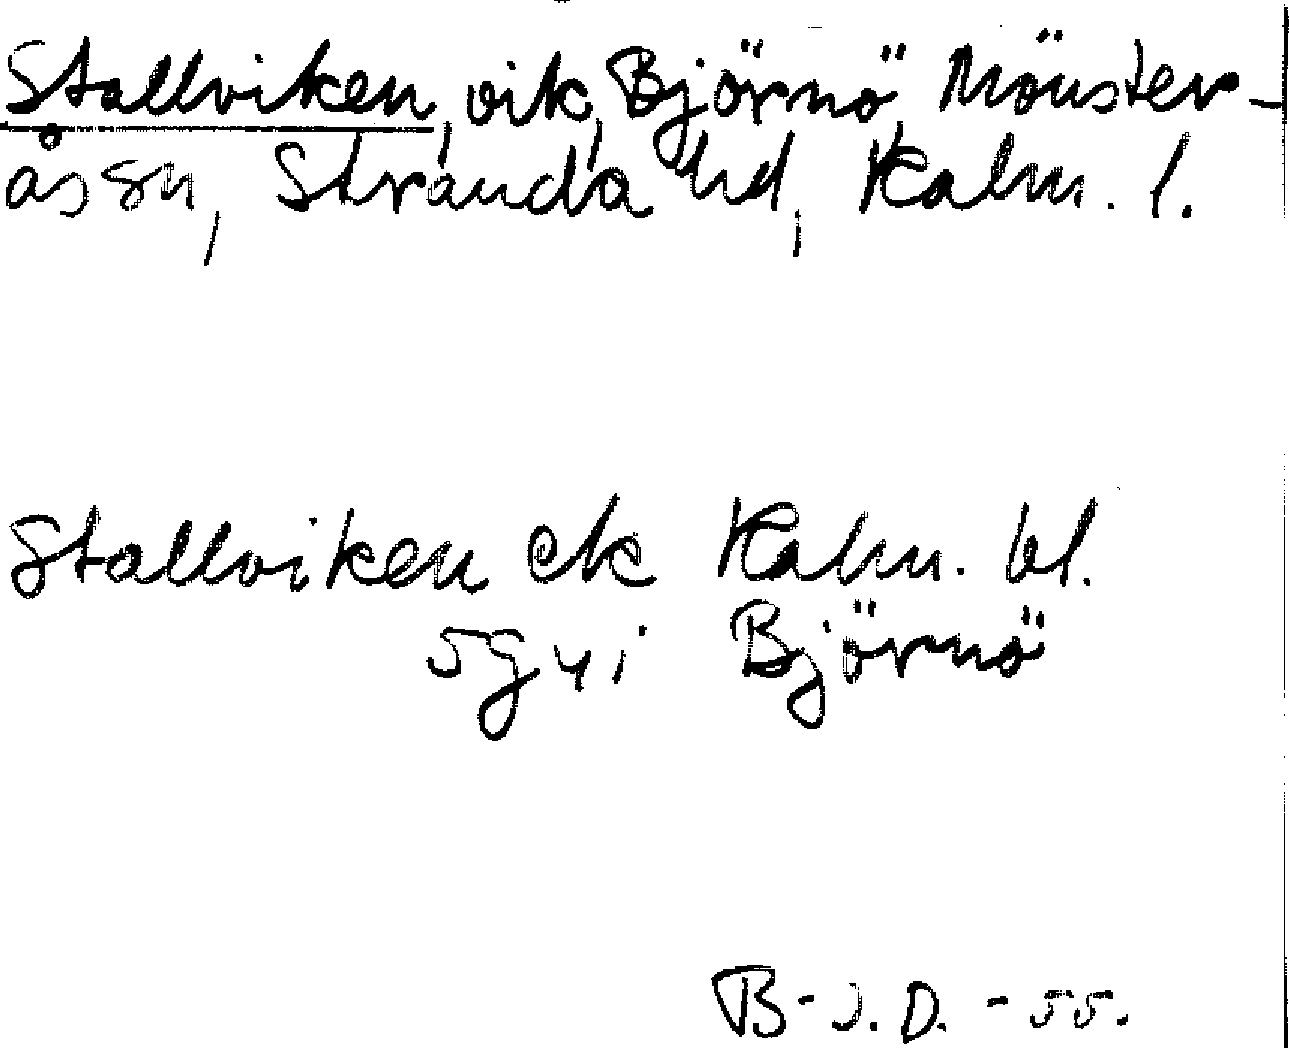 Stallviken, vik, Björnö, Mönster-
ås sn, Stranda hd, Kalm. l.
Stallviken ek Kalm. bl.
5g 4i Björnö
B-J. D. - 55.